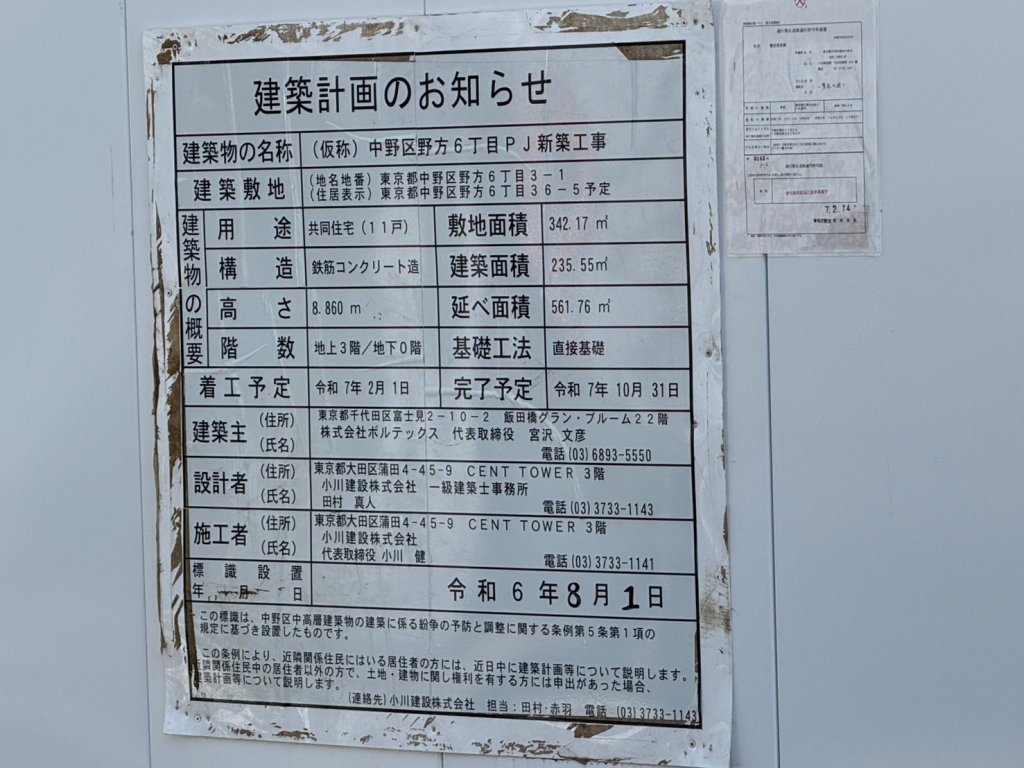 建築計画のお知らせ
建築物の名称 (仮称) 中野区野方6丁目PJ新築工事
建築敷地 (地名地番) 東京都中野区野方6丁目3-1
(住居表示) 東京都中野区野方6丁目36-5予定
建築物の概要
用途 共同住宅(11戸) 敷地面積 342.17 ㎡
構造 鉄筋コンクリート造 建築面積 235.55㎡
高さ 8.860 m 延べ面積 561.76 ㎡
階数 地上3階/地下0階 基礎工法 直接基礎
着工予定 令和 7年 2月 1日 完了予定 令和 7年 10月 31日
建築主 (住所) 東京都千代田区富士見2-10-2 飯田橋グラン・ブルーム22階
(氏名) 株式会社ボルテックス 代表取締役 宮沢 文彦
電話(03)6893-5550
設計者 (住所) 東京都大田区蒲田4-45-9 CENT TOWER 3階
(氏名) 小川建設株式会社 一級建築士事務所
田村 真人 電話(03)3733-1143
施工者 (住所) 東京都大田区蒲田4-45-9 CENT TOWER 3階
(氏名) 小川建設株式会社
代表取締役 小川 健 電話(03)3733-1141
標識設置
年 月 日 令和 6 年 8 月 1 日
この標識は、中野区中高層建築物の建築に係る紛争の予防と調整に関する条例第5条第1項の
規定に基づき設置したものです。
この条例により、近隣関係住民にはいる居住者の方には、近日中に建築計画等について説明します。
近隣関係住民中の居住者以外の方で、土地・建物に関し権利を有する方には申出があった場合、
建築計画等について説明します。
(連絡先)小川建設株式会社 担当:田村・赤羽 電話 (03)3733-1143
7.2.14